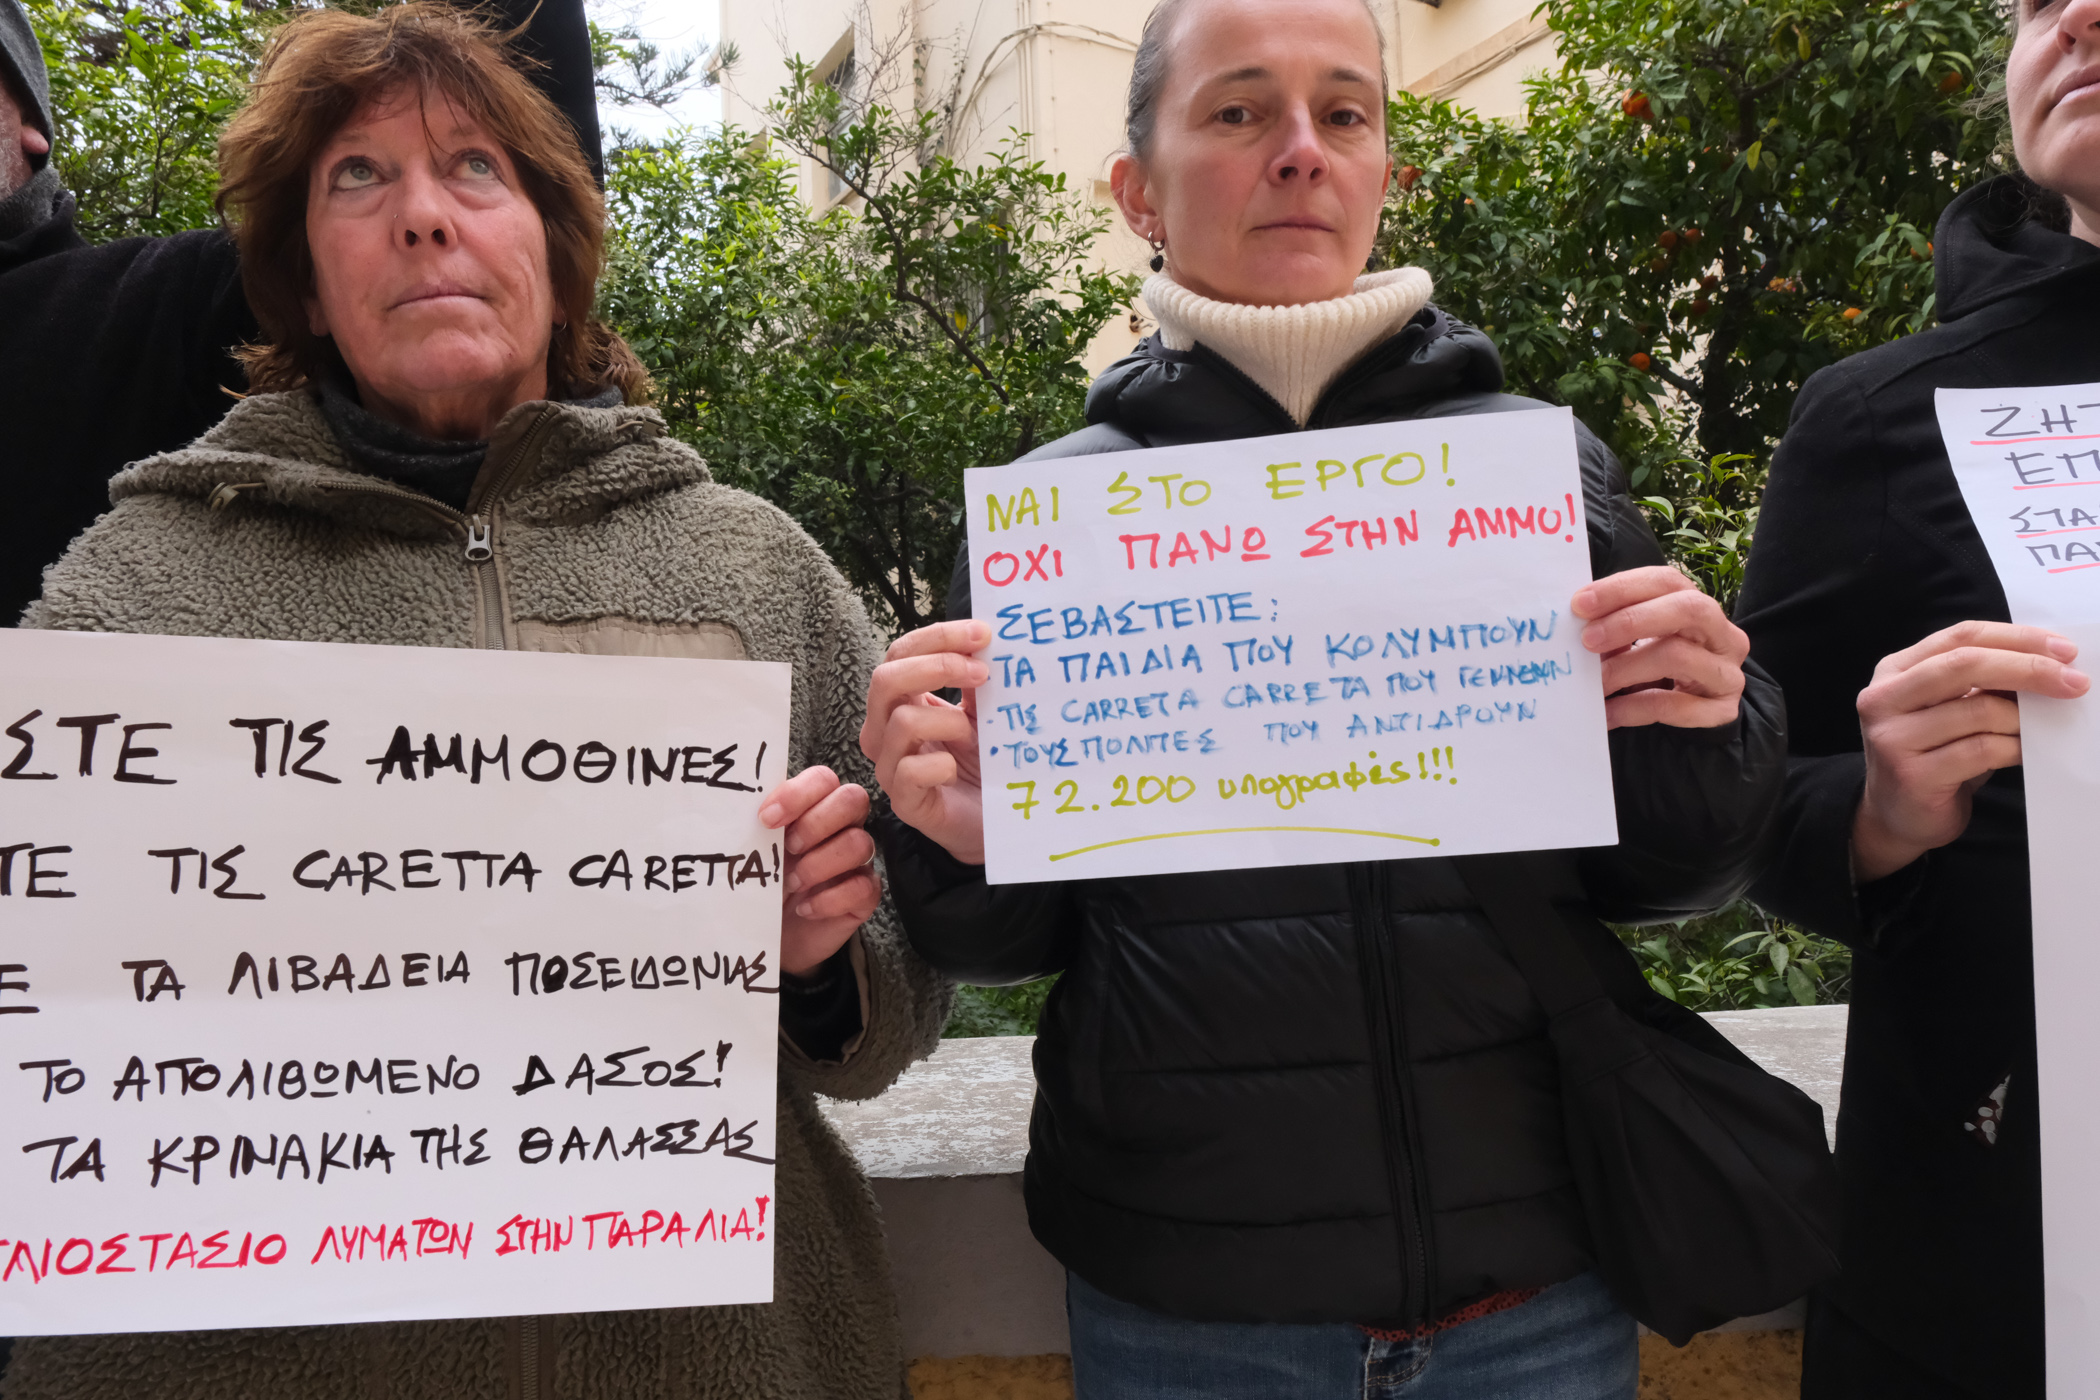 ΣΤΕ ΤΙΣ ΑΜΜΟΘΙΝΕΣ!
ΤΕ ΤΙΣ CARETTA CARETTA!
Ε ΤΑ ΛΙΒΑΔΕΙΑ ΠΟΣΕΙΔΩΝΙΑΣ
ΤΟ ΑΠΟΛΙΘΩΜΕΝΟ ΔΑΣΟΣ!
ΤΑ ΚΡΙΝΑΚΙΑ ΤΗΣ ΘΑΛΑΣΣΑΣ
ΛΙΟΣΤΑΣΙΟ ΛΥΜΑΤΩΝ ΣΤΗΝ ΠΑΡΑΛΙΑ!
ΝΑΙ ΣΤΟ ΕΡΓΟ!
ΟΧΙ ΠΑΝΩ ΣΤΗΝ ΑΜΜΟ!
ΣΕΒΑΣΤΕΙΤΕ:
·ΤΑ ΠΑΙΔΙΑ ΠΟΥ ΚΟΛΥΜΠΟΥΝ
·ΤΙΣ CARRETA CARRETA ΠΟΥ ΓΕΝΝΟΥΝ
·ΤΟΥΣ ΠΟΛΙΤΕΣ ΠΟΥ ΑΝΤΙΔΡΟΥΝ
72.200 υπογραφές!!!
ΖΗΤ
ΕΠ
ΣΤΑ
ΠΑ